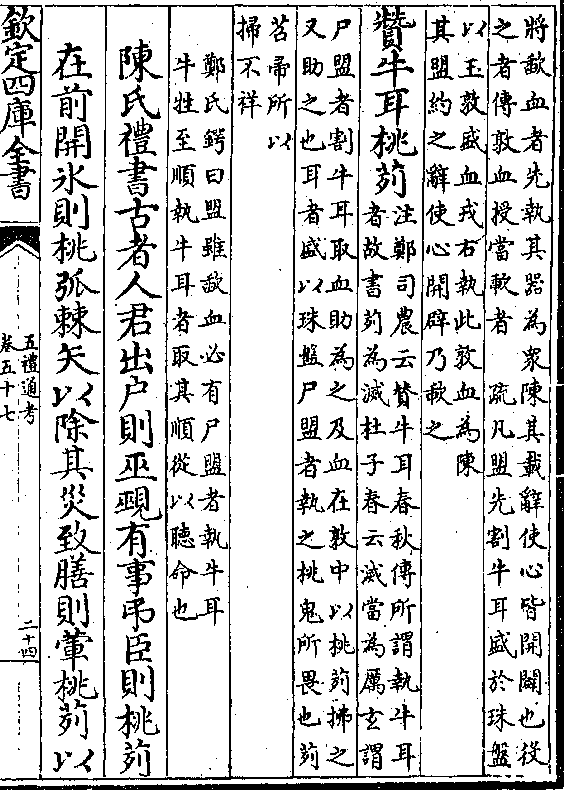 將歃血者先執其器為衆陳其載辭使心皆開闢也役
之者傳敦血授當歃者　疏凡盟先割牛耳盛於珠盤
以玉敦盛血戎右執此敦血為陳
其盟約之辭使心開辟乃歃之
贊牛耳桃茢
注鄭司農云贊牛耳春秋傳所謂執牛耳
者故書茢為滅杜子春云滅當為厲玄謂
尸盟者割牛耳取血助為之及血在敦中以桃茢拂之
又助之也耳者盛以珠盤尸盟者執之桃鬼所畏也茢
苕帚所以
掃不祥
鄭氏鍔曰盟雖歃血必有尸盟者執牛耳
牛牲至順執牛耳者取其順從以聽命也
陳氏禮書古者人君出户則巫覡有事弔臣則桃茢
在前開氷則桃弧棘矢以除其災致膳則葷桃茢以
欽定四庫全書
五禮通考
卷五十七
二十四